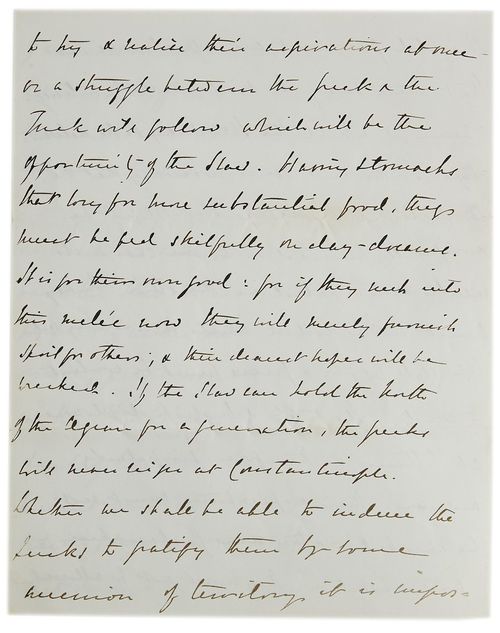 to try & realise their aspirations at once -
or a struggle between the Greek & the
Turk will follow which will be the
opportunity of the Slav. Having stomachs
that long for more substantial food, they
must be fed skilfully on day-dreams.
It is for their own good: for if they rush into
this melée now they will merely furnish
spoil for others; & their dearest hopes will be
wrecked. If the Slav can hold the North
of the Ægean for a generation, the Greeks
will never reign at Constantinople.
Whether we shall be able to induce the
Turks to gratify them by some
cession of territory, it is impos=